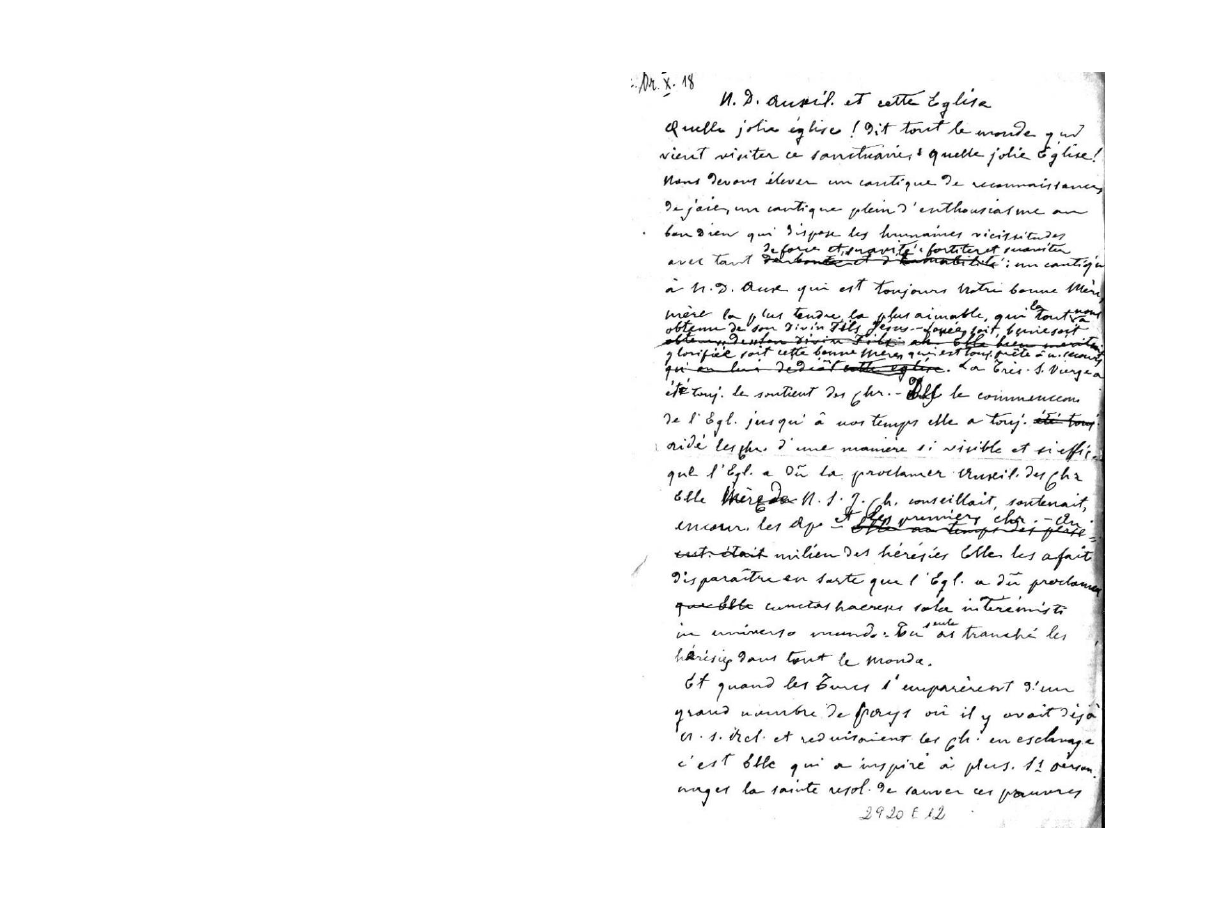 Or. X. 18
N. D. Auxil. et cette Eglise
Quelle jolie église ! Dit tout le monde qui
vient visiter ce sanctuaire, quelle jolie Eglise !
Nous devons élever un cantique de reconnaissance,
de joie, un cantique plein d'enthousiasme au
bon Dieu qui dispose les humaines vicissitudes
de force et suavité : fortiter et suaviter
avec tant de bonté et d'amabilité : un cantique
à N. D. Aux. qui est toujours Notre bonne Mère,
mère la plus tendre, la plus aimable, qui la tout nous
obtenu de son Divin Fils Jésus - soit, bénie soit
obtenu de son Divin Fils Elle bien
glorifiée soit cette bonne Mère, qui est touj. prête à n. secourir
qui on lui dédiât cette église. La Très S. Vierge a
été touj. le soutient des Chr. - Dès le commencem
de l'Egl. jusqu'à nos temps elle a touj. été touj.
aidé les Chr. d'une manière si visible et si effic.
que l'Egl. a dû la proclamer Auxil. des Chr
Elle Mère de N. S. J. Ch. conseillait, soutenait,
encour. les Ap. et les premiers chr. - Au
Elle au temps des persé=
cut. était milieu des hérésies Elle les a fait
disparaître en sorte que l'Egl. a dû proclamer
que Elle cunctas haereses sola interemisti
in universo mundo : Tu seule as tranché les
hérésies dans tout le monde.
Et quand les Turcs s'emparèrent d'un
grand nombre de pays où il y avait déjà
n. s. Rel. et reduisaient les Ch. en esclavage
c'est Elle qui a inspiré à plus. Sts person.
nages la sainte resol. de sauver ces pauvres
2920 E 12